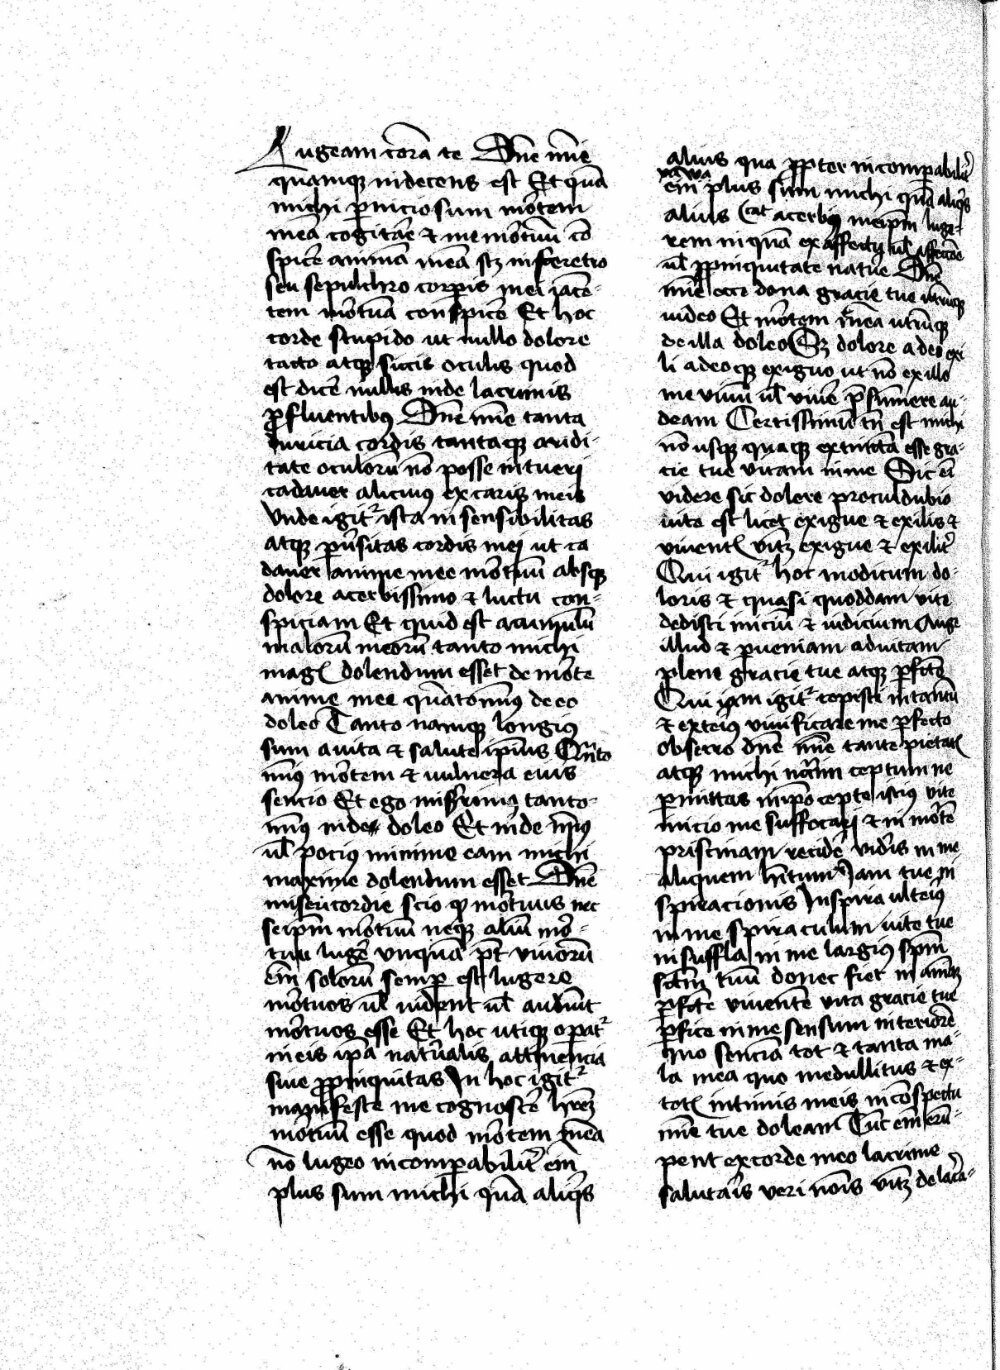 Lugeam corā te Dn̄e mīe
quamꝙ indecens est Et quā
michi ꝑniciosum mōtem
meā cogitāe ⁊ me mōtuū cō
spicē animā meā sꝫ in feretro
seu sepulchro corꝑis mei iacē-
tem mōtuā conspicē Et hoc
corde stupido ut nullo dolore
tacto atqꝫ siccis oculis quod
est dicē nullis inde lacrimis
ꝓfluentibꝰ Dn̄e mīe tanta
duricia cordis tantaqꝫ aridi-
tate oculorū nō posse intueri
cadauer alicuiꝰ ex caris meis
Vnde igit᷑ ista insensibilitas
atqꝫ ꝑuersitas cordis mei ut ca
dauer anime mee mōtuū absqꝫ
dolore acerbissimo ⁊ luctu con-
spiciam Et quid est acumulū
malorū meorū tanto michi
magꝭ dolendum esset de mōte
anime mee quāto minꝰ de eo
doleo Tanto namqꝫ longiꝰ
sum a uita ⁊ salute ipīus Quāto
minꝰ mōtem ⁊ uulnera eius
sencio Et ego miserrimꝰ tanto-
minꝰ inde doleo Et inde minꝰ
ul̄ pociꝰ minime eam michi
maxime dolendum esset Dn̄e
misericordie scio ꝙ mōtuus nec
seipm̄ mōtuū neqꝫ aliū mō-
tuū lugē vnquā pt̄ viuorū
em̄ solorū semꝑ est lugere
mōtuos ul̄ uidēt ul̄ audiūt
mōtuos esse Et hoc utiqꝫ oꝑat᷑
in eis ipā natūalis attinencia
siue ꝓpinquitas In hoc igit᷑
manifeste me cognoscē
mōtuū esse quod mōtem meā
nō lugeo incomꝑabilit᷑ em̄
plus sum michi quā aliꝗs
alius qua ꝓpter incomꝑabilit᷑
em̄ plus sum michi quā aliꝗs
alius acerbiꝰ meipm̄ luge-
rem inquā ex affectu ul̄
ul̄ ꝓpinquitate natūe Dn̄e
mīe ecce dona gracie tue utrūqꝫ
uideo Et mōtem meā utrūqꝫ
de illa doleo Sꝫ dolore adeo exi
li adeoqꝫ exiguo ut nō ex illo
me viuū ul̄ viuē p̄sumere au-
deam Certissimū tn̄ est michi
nō usqꝫ quaqꝫ extinctā esse gra-
cie tue vitam in me Sic em̄
videre sic dolere proculdubio
uite est licet exigue ⁊ exilis ⁊
viuentꝭ exigue ⁊ exilit᷑
Qui igit᷑ hoc modicum do-
loris ⁊ quasi quoddam vite
dedisti iniciū ⁊ iudicium Auge
illud ⁊ ꝑueniam ad uitam
plene gracie tue atqꝫ ꝑfcte
Qui iam igit᷑ cepisti in tantū
⁊ exteriꝰ viuificare me ꝑfecto
obsecro dn̄e mīe tante pietatꝭ
atqꝫ michi ceptum ne
ꝑmittas in ipō cepte istiꝰ vite
inicio me suffocari ⁊ in mōtē
pristinam recidē vidēis in me
aliquem Iam tue in
spiracionis Inspira ulteriꝰ
in me spiraculum uite tue
insuffla in me largiꝰ spm̄
sctm̄ tuū donec fiet in
ꝑfcte viuentē vita gracie tue
ꝑfice in me sensum interiorē
quo senciā tot ⁊ tanta ma-
la mea quo medullitus ⁊ ex-
totꝭ intimis meis in cōspectu
mīe tue doleam Tūc em̄ erū-
pent ex corde meo lacrime
salutaris veri nōis de lacri-